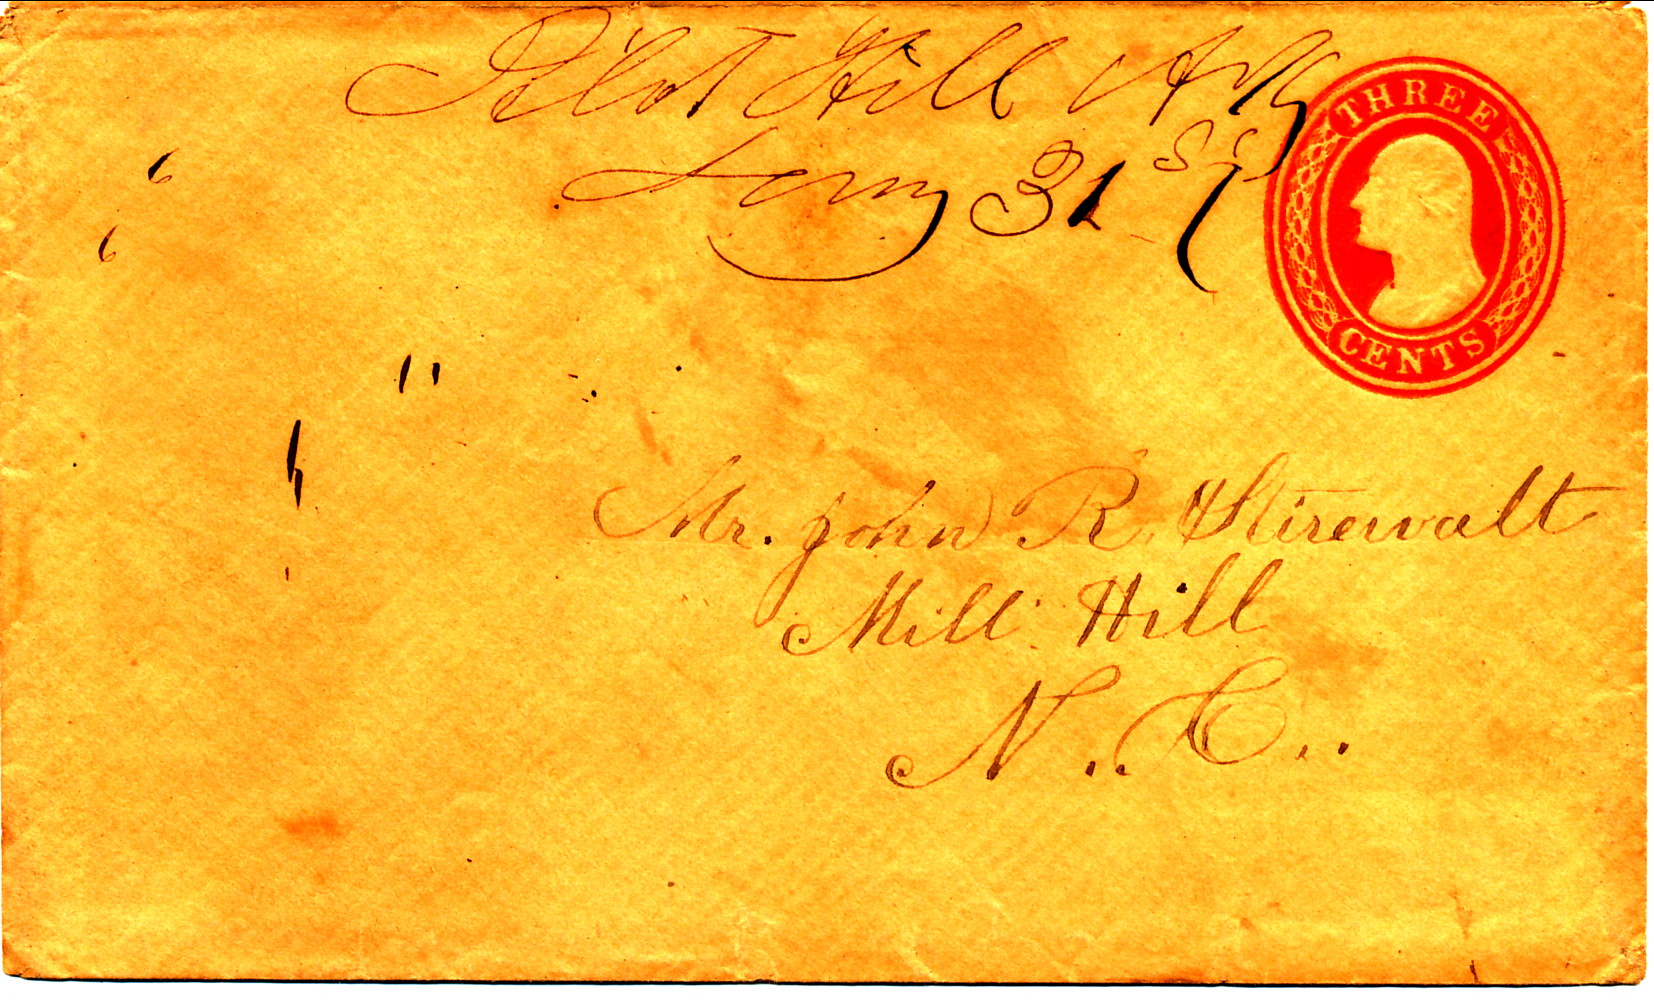 Pilot Hill Ark
Jany 31st
THREE
CENTS
Mr. John R. Stirewalt
Mill Hill
N. C.